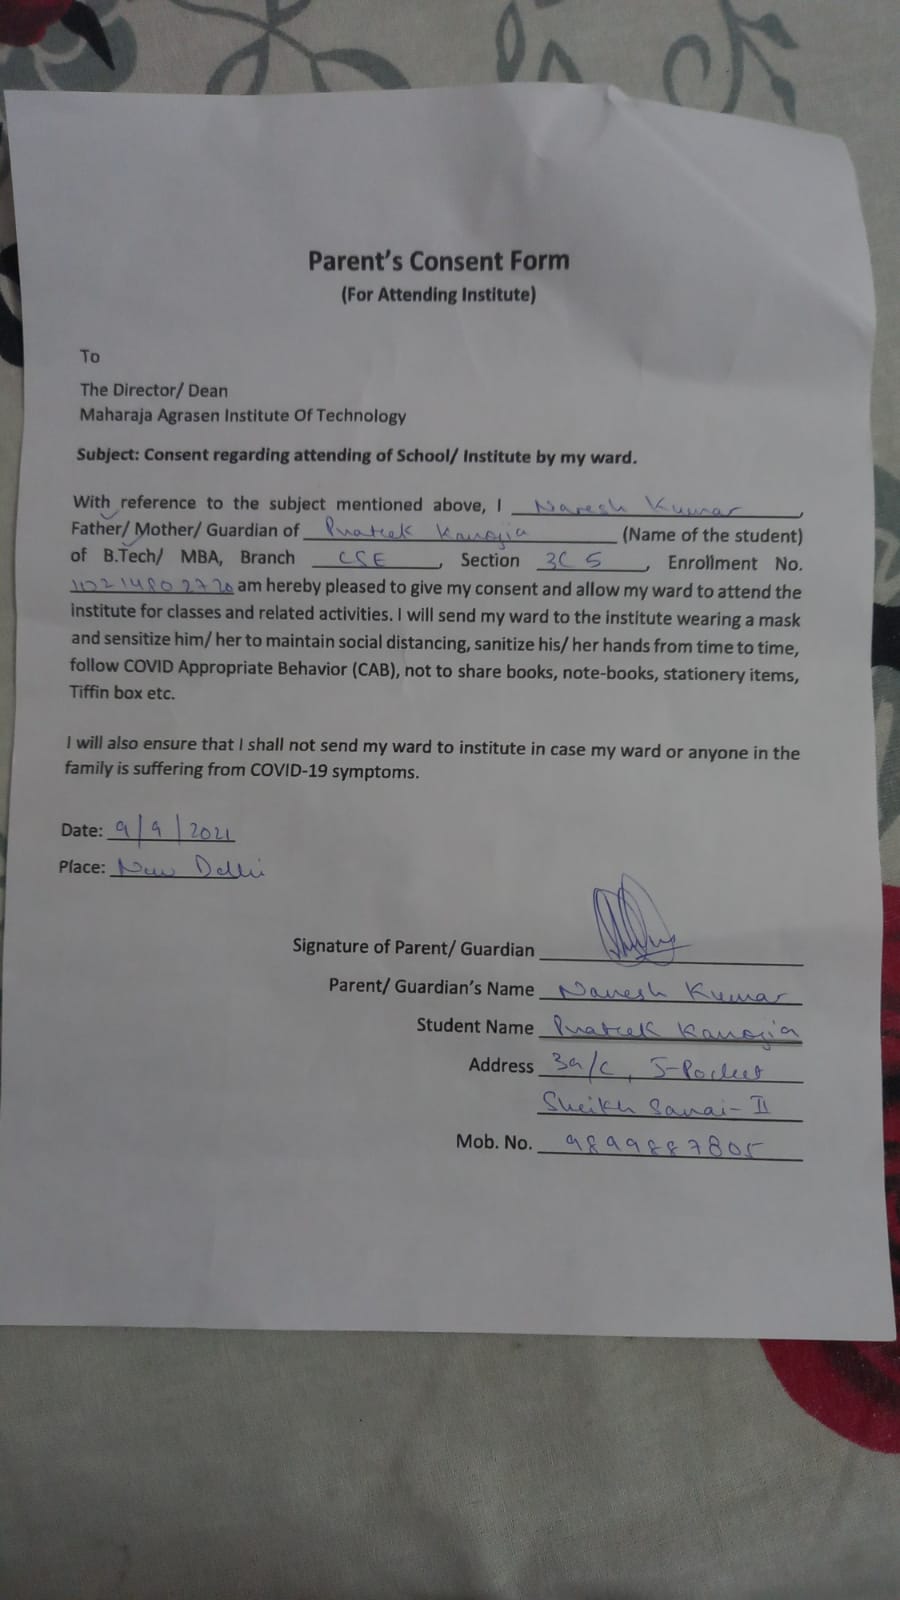 Parent's Consent Form
(For Attending Institute)
To
The Director/ Dean
Maharaja Agrasen Institute Of Technology
Subject: Consent regarding attending of School/ Institute by my ward.
With reference to the subject mentioned above, I Naresh Kumar,
Father/ Mother/ Guardian of Prateek Kanojia (Name of the student)
of B.Tech/ MBA, Branch CSE, Section 3C5, Enrollment No.
am hereby pleased to give my consent and allow my ward to attend the
institute for classes and related activities. I will send my ward to the institute wearing a mask
and sensitize him/ her to maintain social distancing, sanitize his/ her hands from time to time,
follow COVID Appropriate Behavior (CAB), not to share books, note-books, stationery items,
Tiffin box etc.
I will also ensure that I shall not send my ward to institute in case my ward or anyone in the
family is suffering from COVID-19 symptoms.
Date: 9/9/2021
Place: New Delhi
Signature of Parent/ Guardian
Parent/ Guardian's Name Naresh Kumar
Student Name Prateek Kanojia
Address 39/C, J-Pocket
Sheikh Sarai-II
Mob. No. 9899887805